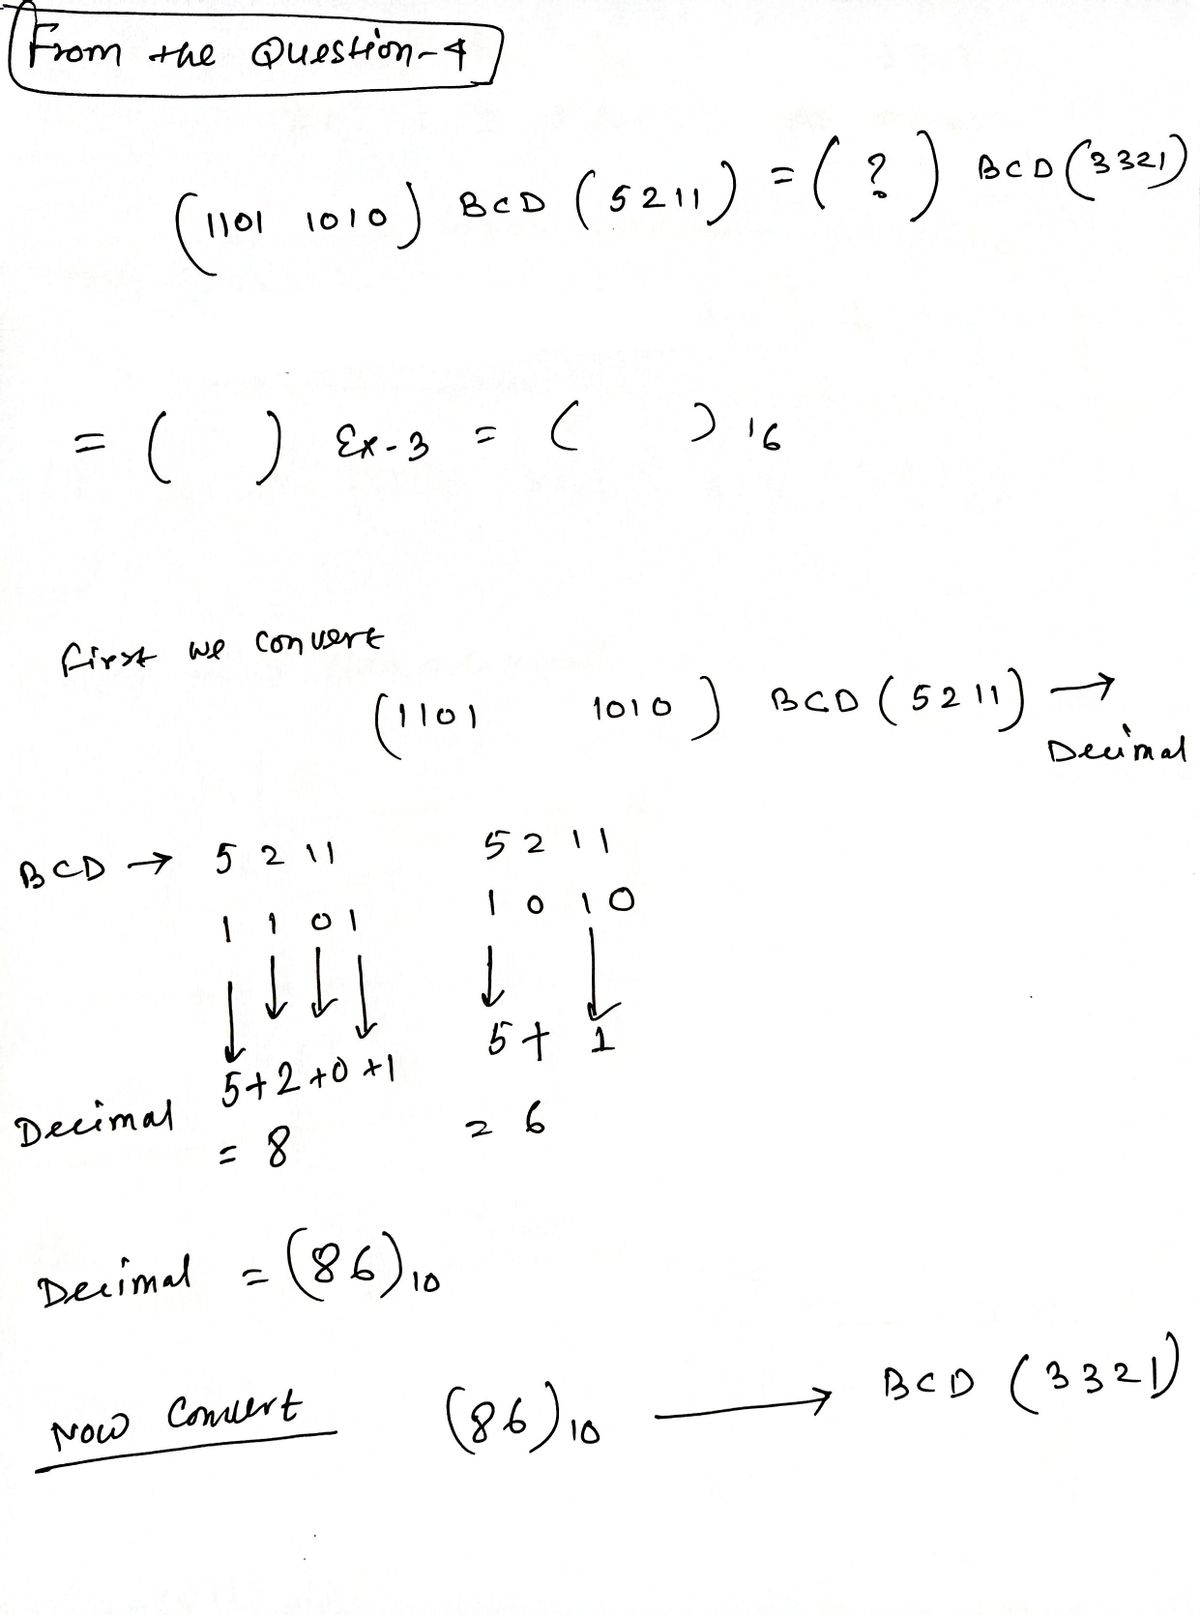 From the Question-4
(1101 1010) BCD (5211) = ( ? ) BCD (3321)
= ( ) Ex-3 = ( ) 16
first we convert
(1101 1010) BCD (5211) →
Decimal
BCD → 5 2 1 1 5 2 1 1
1 1 0 1 1 0 1 0
↓ ↓ ↓ ↓ ↓ ↓
5 + 1
5+2+0+1
Decimal
= 8 = 6
Decimal = (86)10
Now Convert (86)10 → BCD (3321)